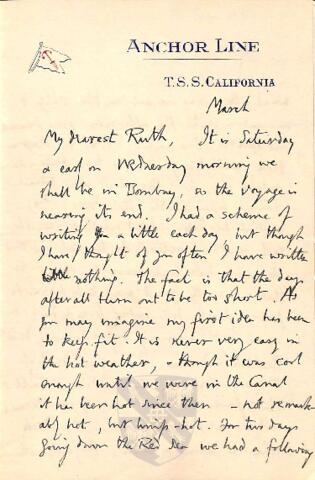 ANCHOR LINE
T.S.S. CALIFORNIA
March
My dearest Ruth, It is Saturday
& early on Wednesday morning we
shall be in Bombay, so the voyage is
nearing its end. I had a scheme of
writing you a little each day but though
I have thought of you often I have written
nothing. The fact is that the days
after all turn out to be too short. As
you may imagine my first idea has been
to keep fit. It is never very easy in
the hot weather, - though it was cool
enough until we were in the Canal
it has been hot since then - not remark-
ably hot, but hot. For two days
going down the Red Sea we had a following